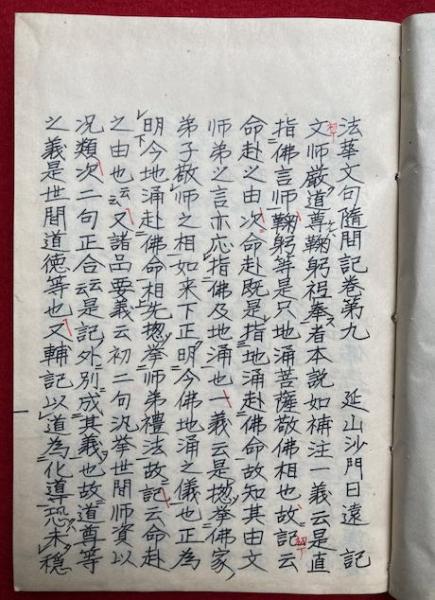 法華文句隨聞記卷第九　延山沙門日遠　記
文師厳道尊鞠躬祗奉者本説如補注一義云是直
指佛言師鞠躬等是只地涌菩薩敬佛相也故記云
命赴之由次命赴既是指地涌赴佛命故知其由文
師弟之言亦応指佛及地涌也一義云是揔挙佛家
弟子敬師之相如来下正明今佛地涌之儀也正為
明今地涌赴佛命相先揔挙師弟禮法故記云命赴
之由也云云又諸品要義云初二句汎挙世間師資以
况類次二句正合云云是記外別成其義也故道尊等
之義是世間道徳等也又輔記以道為化導恐未穏